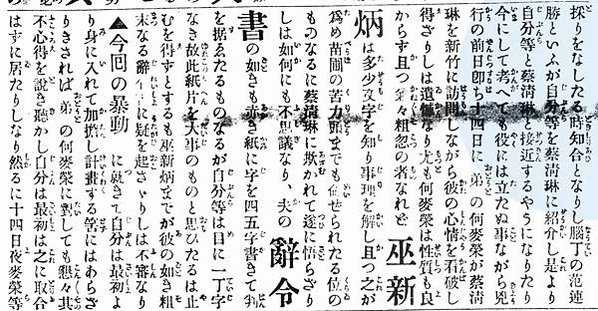 採りをなしたる時知合となりし腦丁の范連
勝といふが自分等を蔡清琳に紹介し是より
自分等と蔡清琳と接近するやうになりたり
今にして考へても役には立たぬ事ながら兇
行の前日卽ち十四日に、弟の何麥榮が蔡清
琳を新竹に訪問しながら彼の心情を看破し
得ざりしは遺憾なり尤も何麥榮は性質も良
からず且つ粗忽の者なれど 巫新
炳は多少文字を知り事理を解し且つ之が
爲め苗圃の苦力頭までも任せられたる位の
ものなるに蔡清琳に欺かれて遂に悟らざり
しは如何にも不思議なり、夫の 辭令
書の如きも赤き紙に字を四五字書きて判
を据ゑたるものなるが自分等は目に一丁字
なき故此紙片を大事のものと思ひたるは止
むを得ずとするも巫新炳までが彼の如き粗
末なる辭令に疑を起さゞりしは不審なり
▲今回の暴動 に就きて自分は最初よ
り身に入れて加擔し計畫する等にはあらざ
りきされば弟の何麥榮に對しても懇々其
不心得を說き聽かし自分は最初は之に取合
はずに居たりしなり然るに十四日夜麥榮等